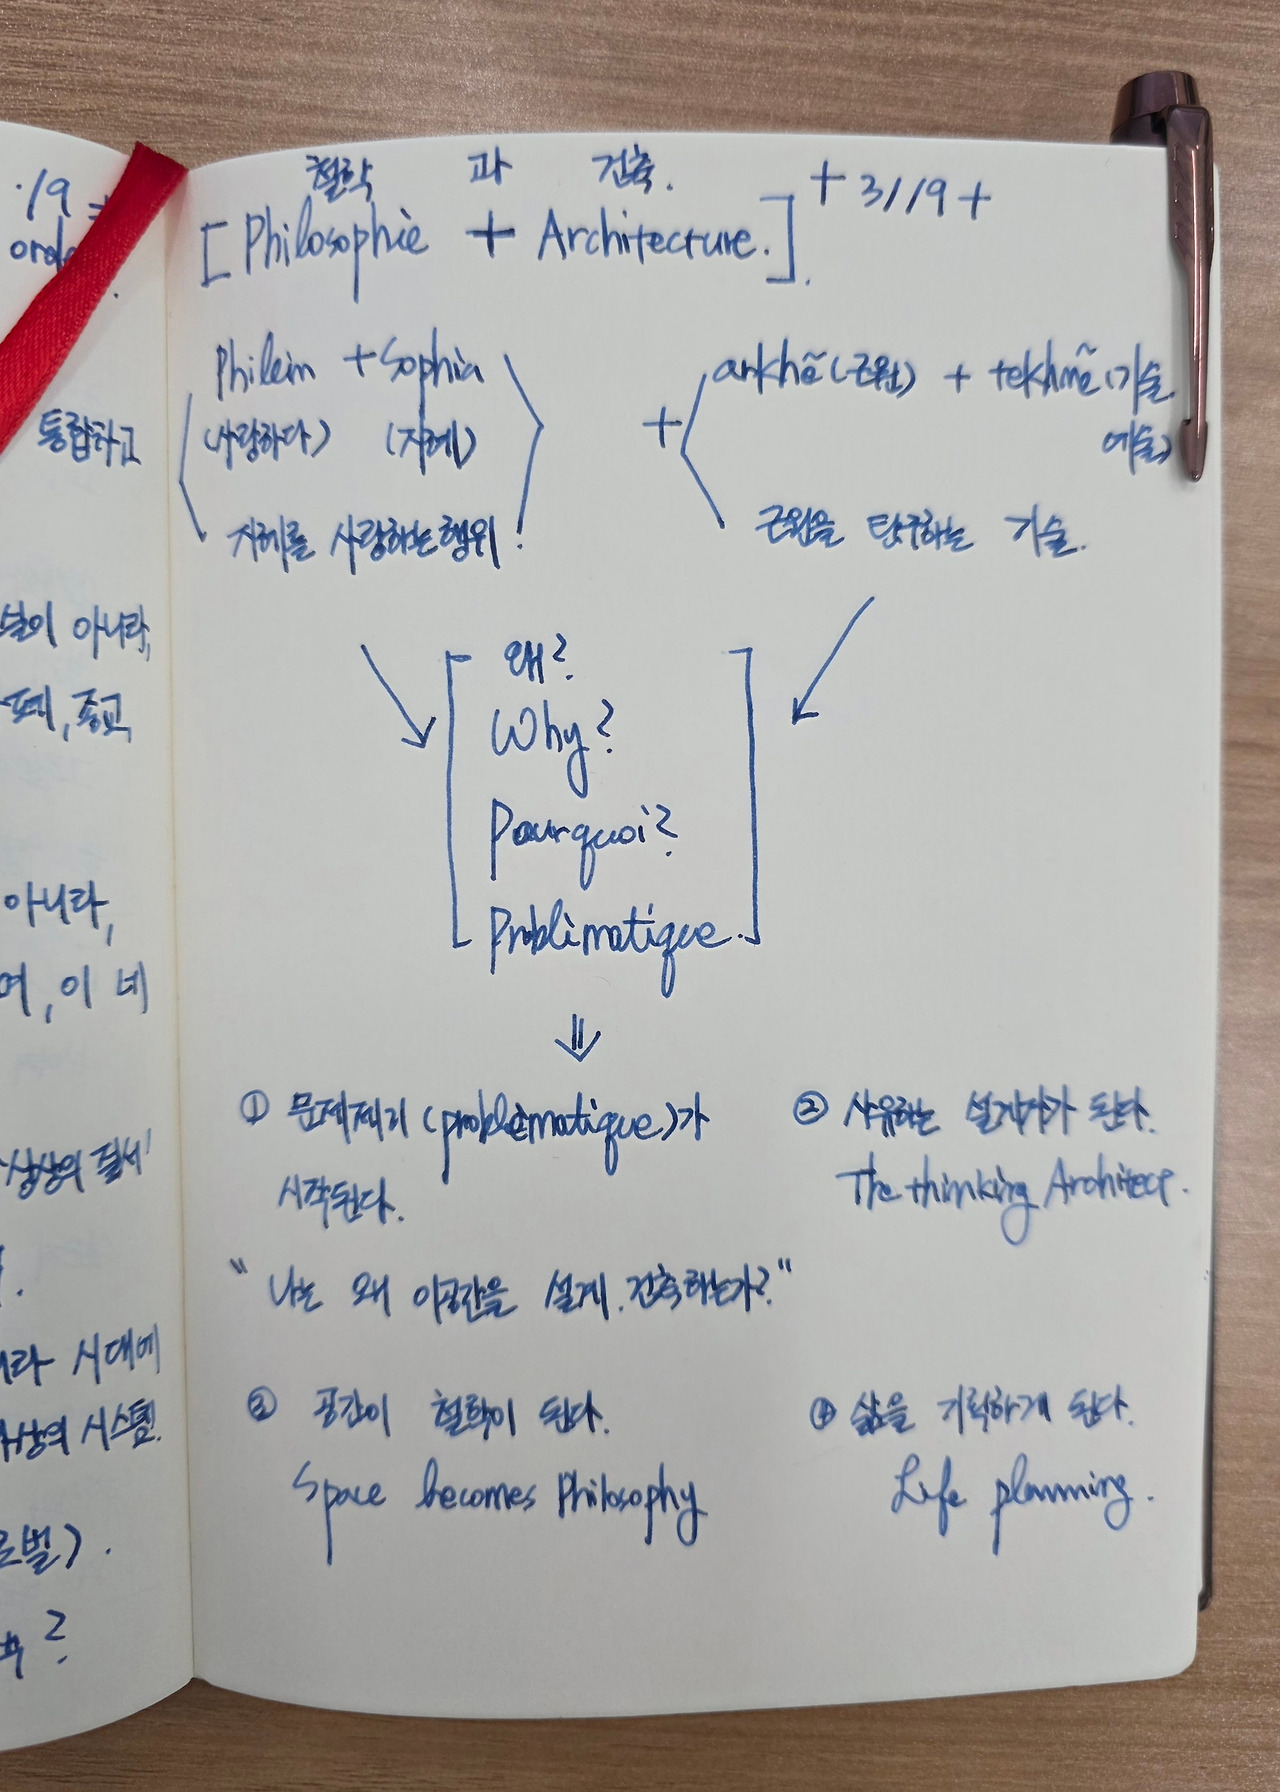 ·/9
orde
통합하고
설이 아니라,
표떼, 종교,
아니라,
며, 이 네
상상의 질서'
라 시대에
상의 시스템.
로벌).
?
철학 과 건축.
[Philosophie + Architecture.]. + 3/19 +
Philein + Sophia
(사랑하다) (지혜)
지혜를 사랑하는 행위!
+
arkhē (근원) + tekhnē (기술
예술)
근원을 탐구하는 기술.
왜?
Why?
Pourquoi?
Problèmatique.
① 문제제기 (problèmatique)가
시작된다.
② 사유하는 설계자가 된다.
The thinking Architect.
" 나는 왜 이공간을 설계. 건축하는가?"
③ 공간이 철학이 된다.
Space becomes Philosophy
④ 삶을 기획하게 된다.
Life planning.